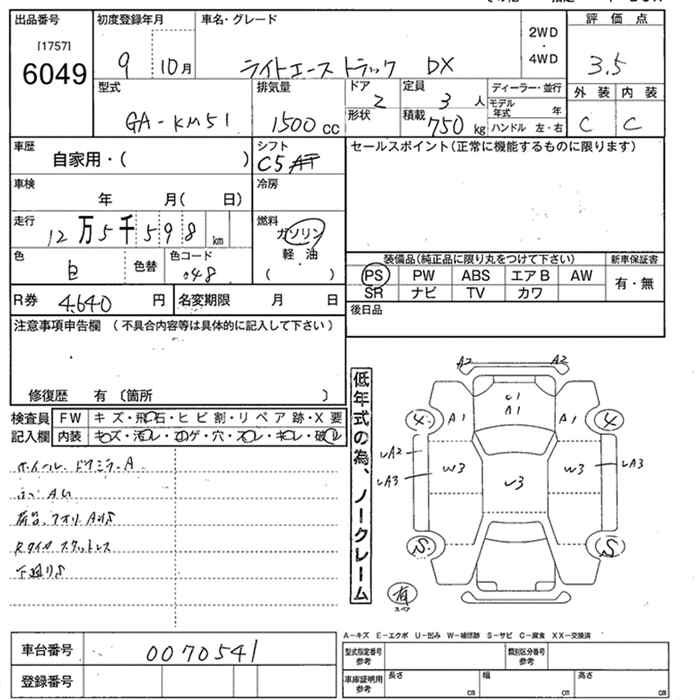 出品番号
[1757]
6049
初度登録年月
9 10月
車名・グレード
ライトエーストラック DX
2WD
・
4WD
評価点
3.5
外装 内装
C C
型式
GA-KM51
排気量
1500cc
ドア
2
形状
定員
3人
積載
750kg
ディーラー・並行
モデル年式 年
ハンドル 左・右
車歴
自家用・( )
シフト
C5 AT
車検
年 月( 日)
冷房
走行
12万5千598km
燃料
ガソリン
軽油
( )
色
白
色替
色コード
048
R券 4,640円
名変期限 月 日
セールスポイント(正常に機能するものに限ります)
装備品(純正品に限り丸をつけて下さい)
PS PW ABS エアB AW
SR ナビ TV カワ
新車保証書
有・無
後日品
注意事項申告欄 (不具合内容等は具体的に記入して下さい)
修復歴 有 〔箇所 〕
検査員記入欄
FW キズ・飛石・ヒビ割・リペア跡・X要
内装 キズ・汚レ・コゲ・穴・スレ・キレ・破レ
ホイール、ドアミラーA
荷台、アオリ
Rタイヤスタットレス
下廻りS
低年式の為、ノークレーム
A2 A2
U1
A1
A1 A1
4 4
UA2
UA3
W3 U3 W3
UA3
S S
有
スペア
A-キズ E-エクボ U-凹み W-補修跡 S-サビ C-腐食 XX-交換済
車台番号 0070541
登録番号
型式指定番号
参考
類別区分番号
参考
車庫証明用
参考
長さ cm
幅 cm
高さ cm